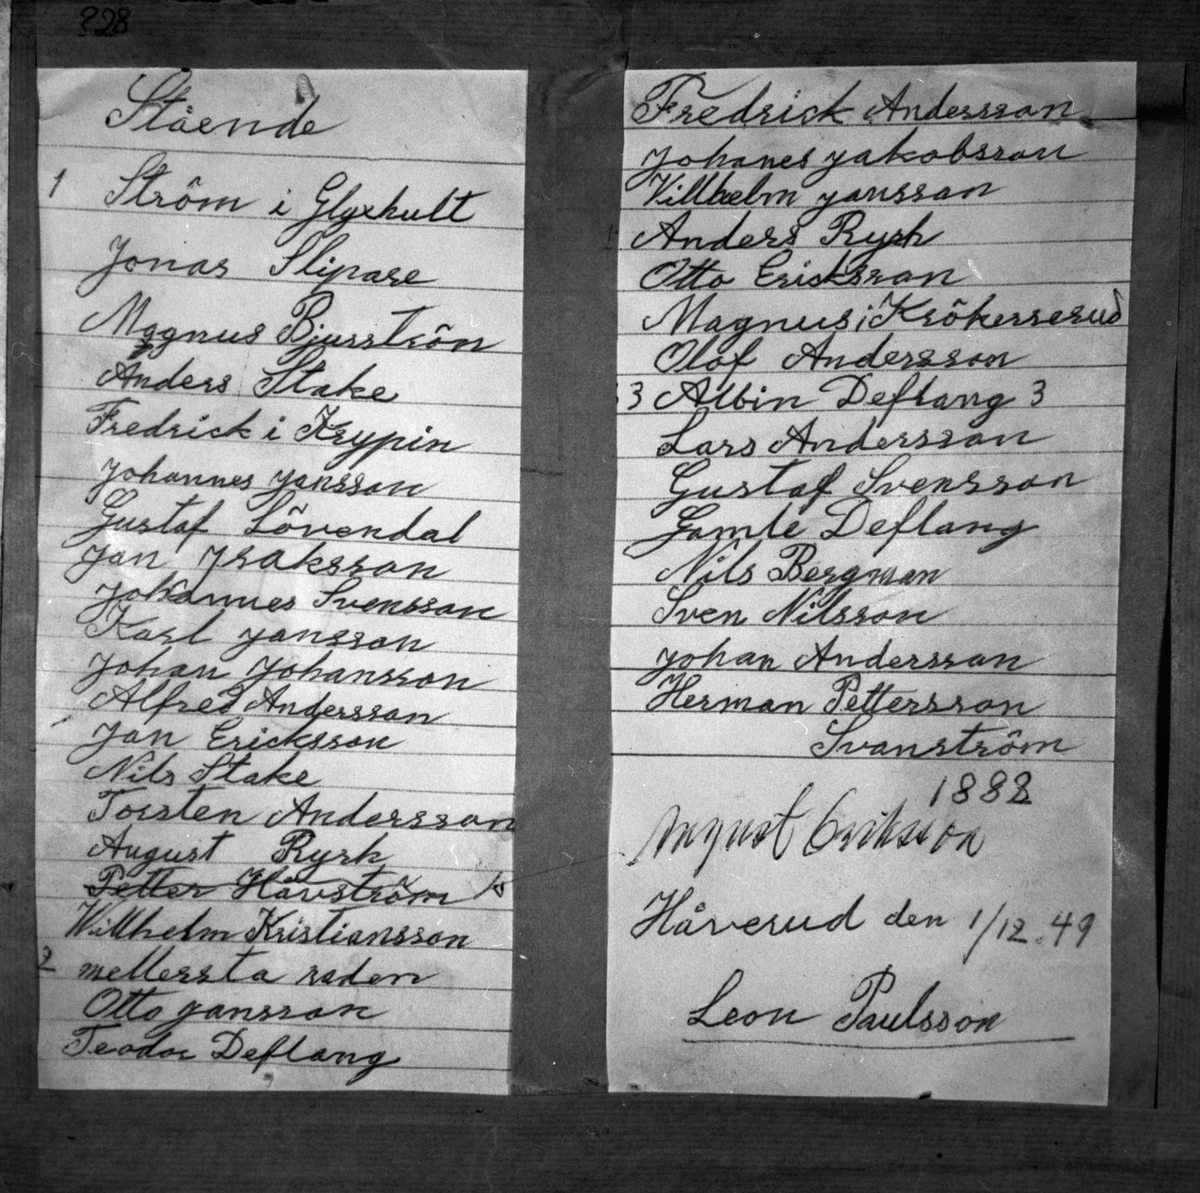 228
Stående
1 Ström i Glyxhult
Jonas Slipare
Magnus Bjurström
Anders Stake
Fredrick i Krypin
Johannes Jansson
Gustaf Lövendal
Jan Isaksson
Johannes Svensson
Karl Jansson
Johan Johansson
Alfred Andersson
Jan Ericksson
Nils Stake
Torsten Andersson
August Rysk
Petter Håvström
Willhelm Kristiansson
2 mellersta raden
Otto Jansson
Teodor Deflang
Fredrick Andersson
Johanes Jakobsson
Villhelm Jansson
Anders Rysk
Otto Ericksson
Magnus i Krökerserud
Olof Andersson
3 Albin Deflang 3
Lars Andersson
Gustaf Svensson
Gamle Deflang
Nils Bergman
Sven Nilsson
Johan Andersson
Herman Pettersson
Svanström
1888
August Eriksson
Håverud den 1/12.49
Leon Paulsson